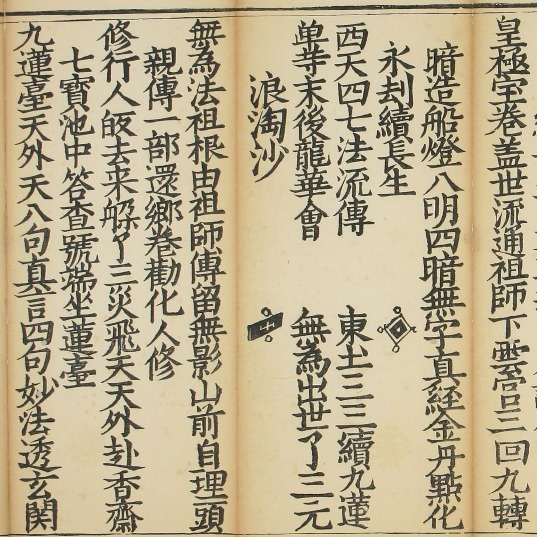 皇極宝卷盖世流通祖師下雲宮三回九轉
暗造船燈八明四暗無字真經金丹點化
永刦續長生
西天四七法流傳 東土三三續九蓮
单等末後龍華會 無為出世了三元
浪淘沙
無為法祖根由祖師傳留無影山前自埋頭
親傳一部還鄉卷勸化人修
修行人皈去来躲了三災飛天天外赴香齋
七寶池中答查號端坐蓮臺
九蓮臺天外天八句真言四句妙法透玄関